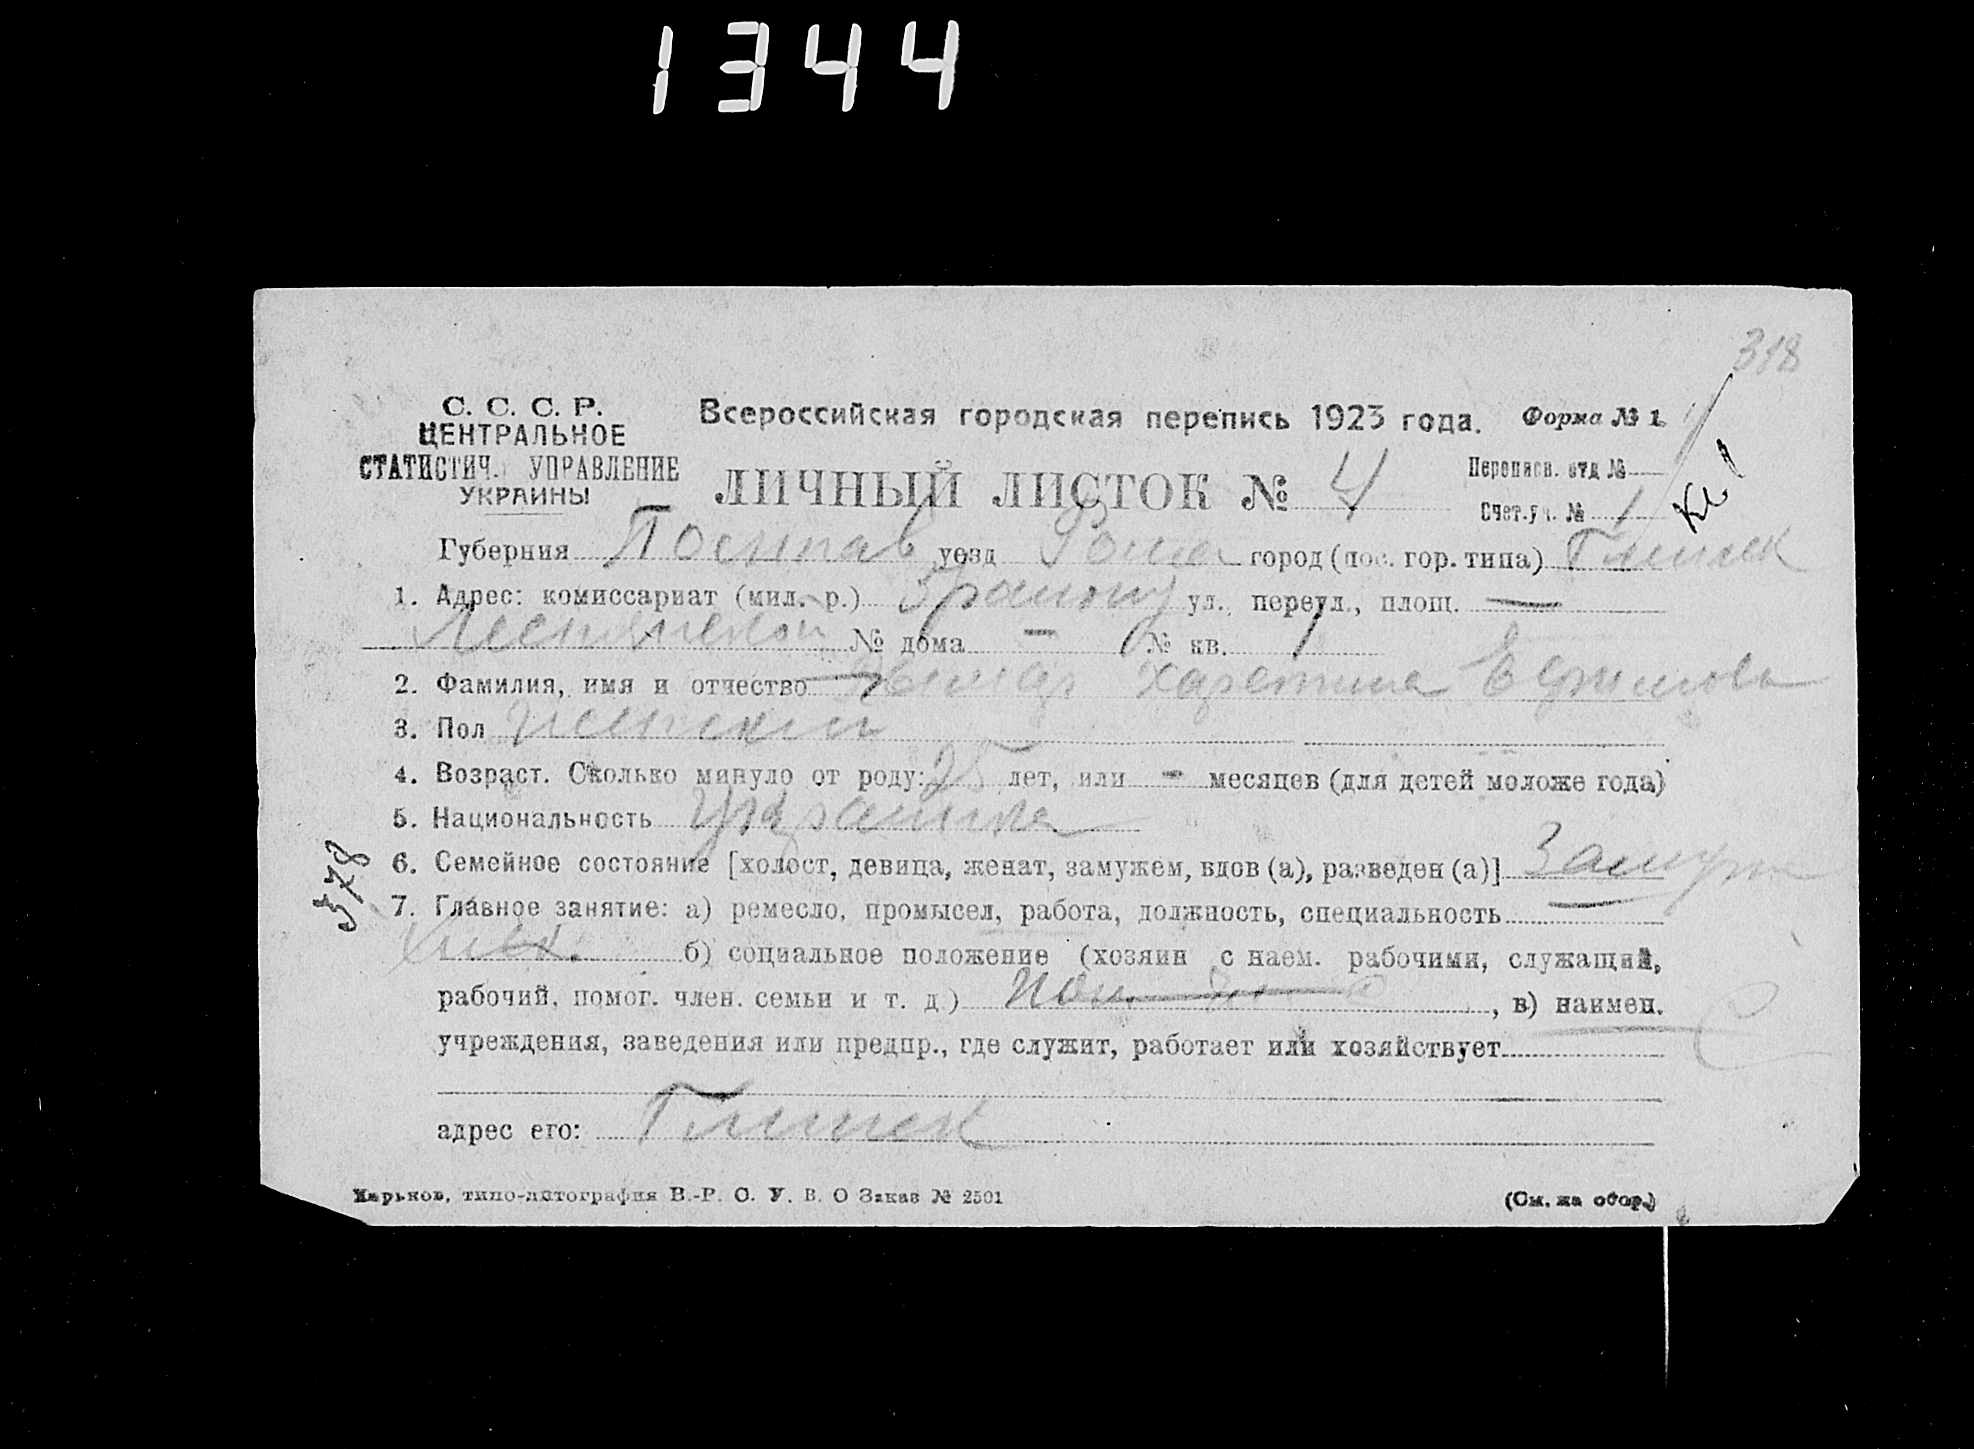 1344
318
С. С. С. Р.
ЦЕНТРАЛЬНОЕ
СТАТИСТИЧ. УПРАВЛЕНИЕ
УКРАИНЫ
Всероссийская городская перепись 1923 года. Форма № 1.
ЛИЧНЫЙ ЛИСТОК № 4
Переписн. отд №
Счет.уч. № 1
Губерния Полтав уезд город (пос. гор. типа) Глинск
1. Адрес: комиссариат (мил. р.) ул., переул., площ. —
№ дома — № кв. 1
2. Фамилия, имя и отчество Харетина Ефимовн
3. Пол женский
4. Возраст. Сколько минуло от роду: 25 лет, или - месяцев (для детей моложе года)
5. Национальность Украинка
6. Семейное состояние [холост, девица, женат, замужем, вдов (а), разведен (а)] Замуж
378
7. Главное занятие: а) ремесло, промысел, работа, должность, специальность
б) социальное положение (хозяин с наем. рабочими, служащий,
рабочий, помог. член. семьи и т. д.) , в) наимен.
учреждения, заведения или предпр., где служит, работает или хозяйствует
адрес его: Глинск
Харьков, типо-литография В.-Р. С. У. В. О Заказ № 2501
(См. на обор.)